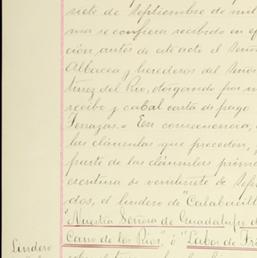 siete de Septiembre de mil
ma se confiera recibido en ef
ción antes de ate acto el Señor
Albacea y herederos del Señor
tinez del Rio, otorgando por
recibo y cabal carta de pago
Terrazas. En consecuencia,
las cláusulas que preceden,
parte de las cláusulas prime
escritura se veintisiete de Sep
dos, el lindero de "Calabacill
"Nuestra Señora de Guadalupe d
Cano de los Rios", ó "Labor de Tr
Lindero